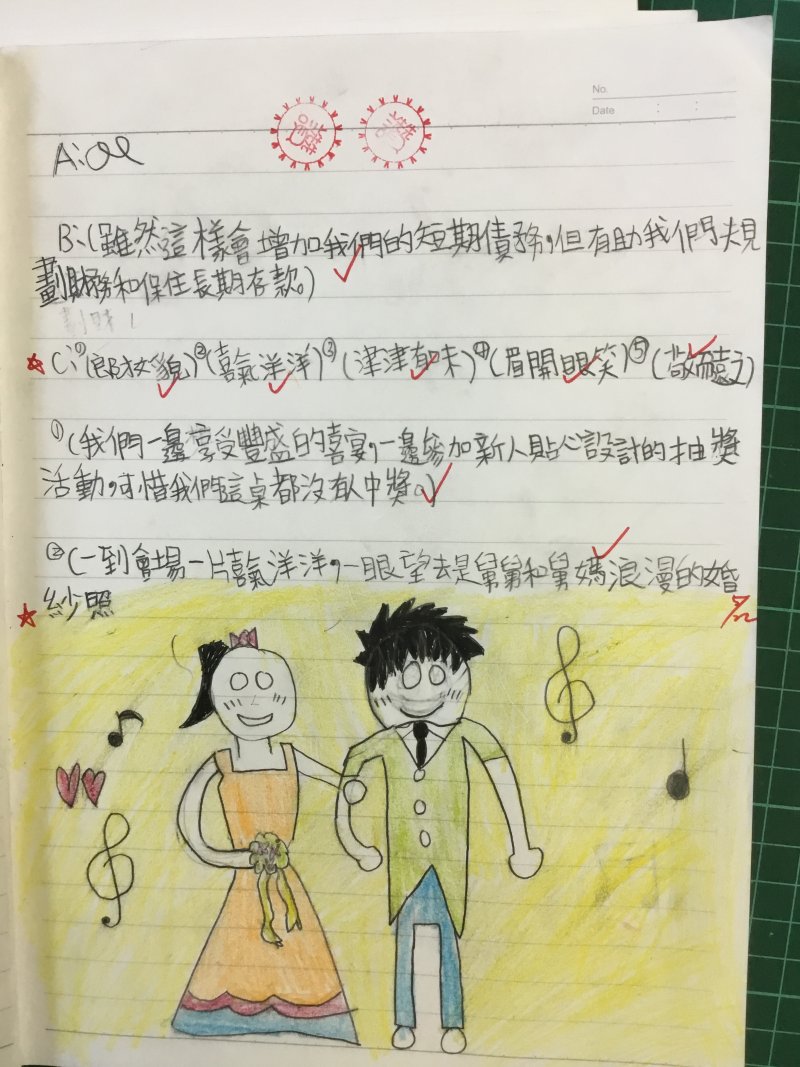 No.
Date : :
A:
B:(雖然這樣會增加我們的短期債務,但有助我們規
劃財務和保住長期存款。)
C:①(郎才女貌)②(喜氣洋洋)③(津津有味)④(眉開眼笑)⑤(敬而遠之)
①(我們一邊享受豐盛的喜宴,一邊參加新人貼心設計的抽獎
活動,可惜我們這桌都沒有人中獎。)
②(一到會場一片喜氣洋洋,一眼望去是舅舅和舅媽浪漫的婚
紗照